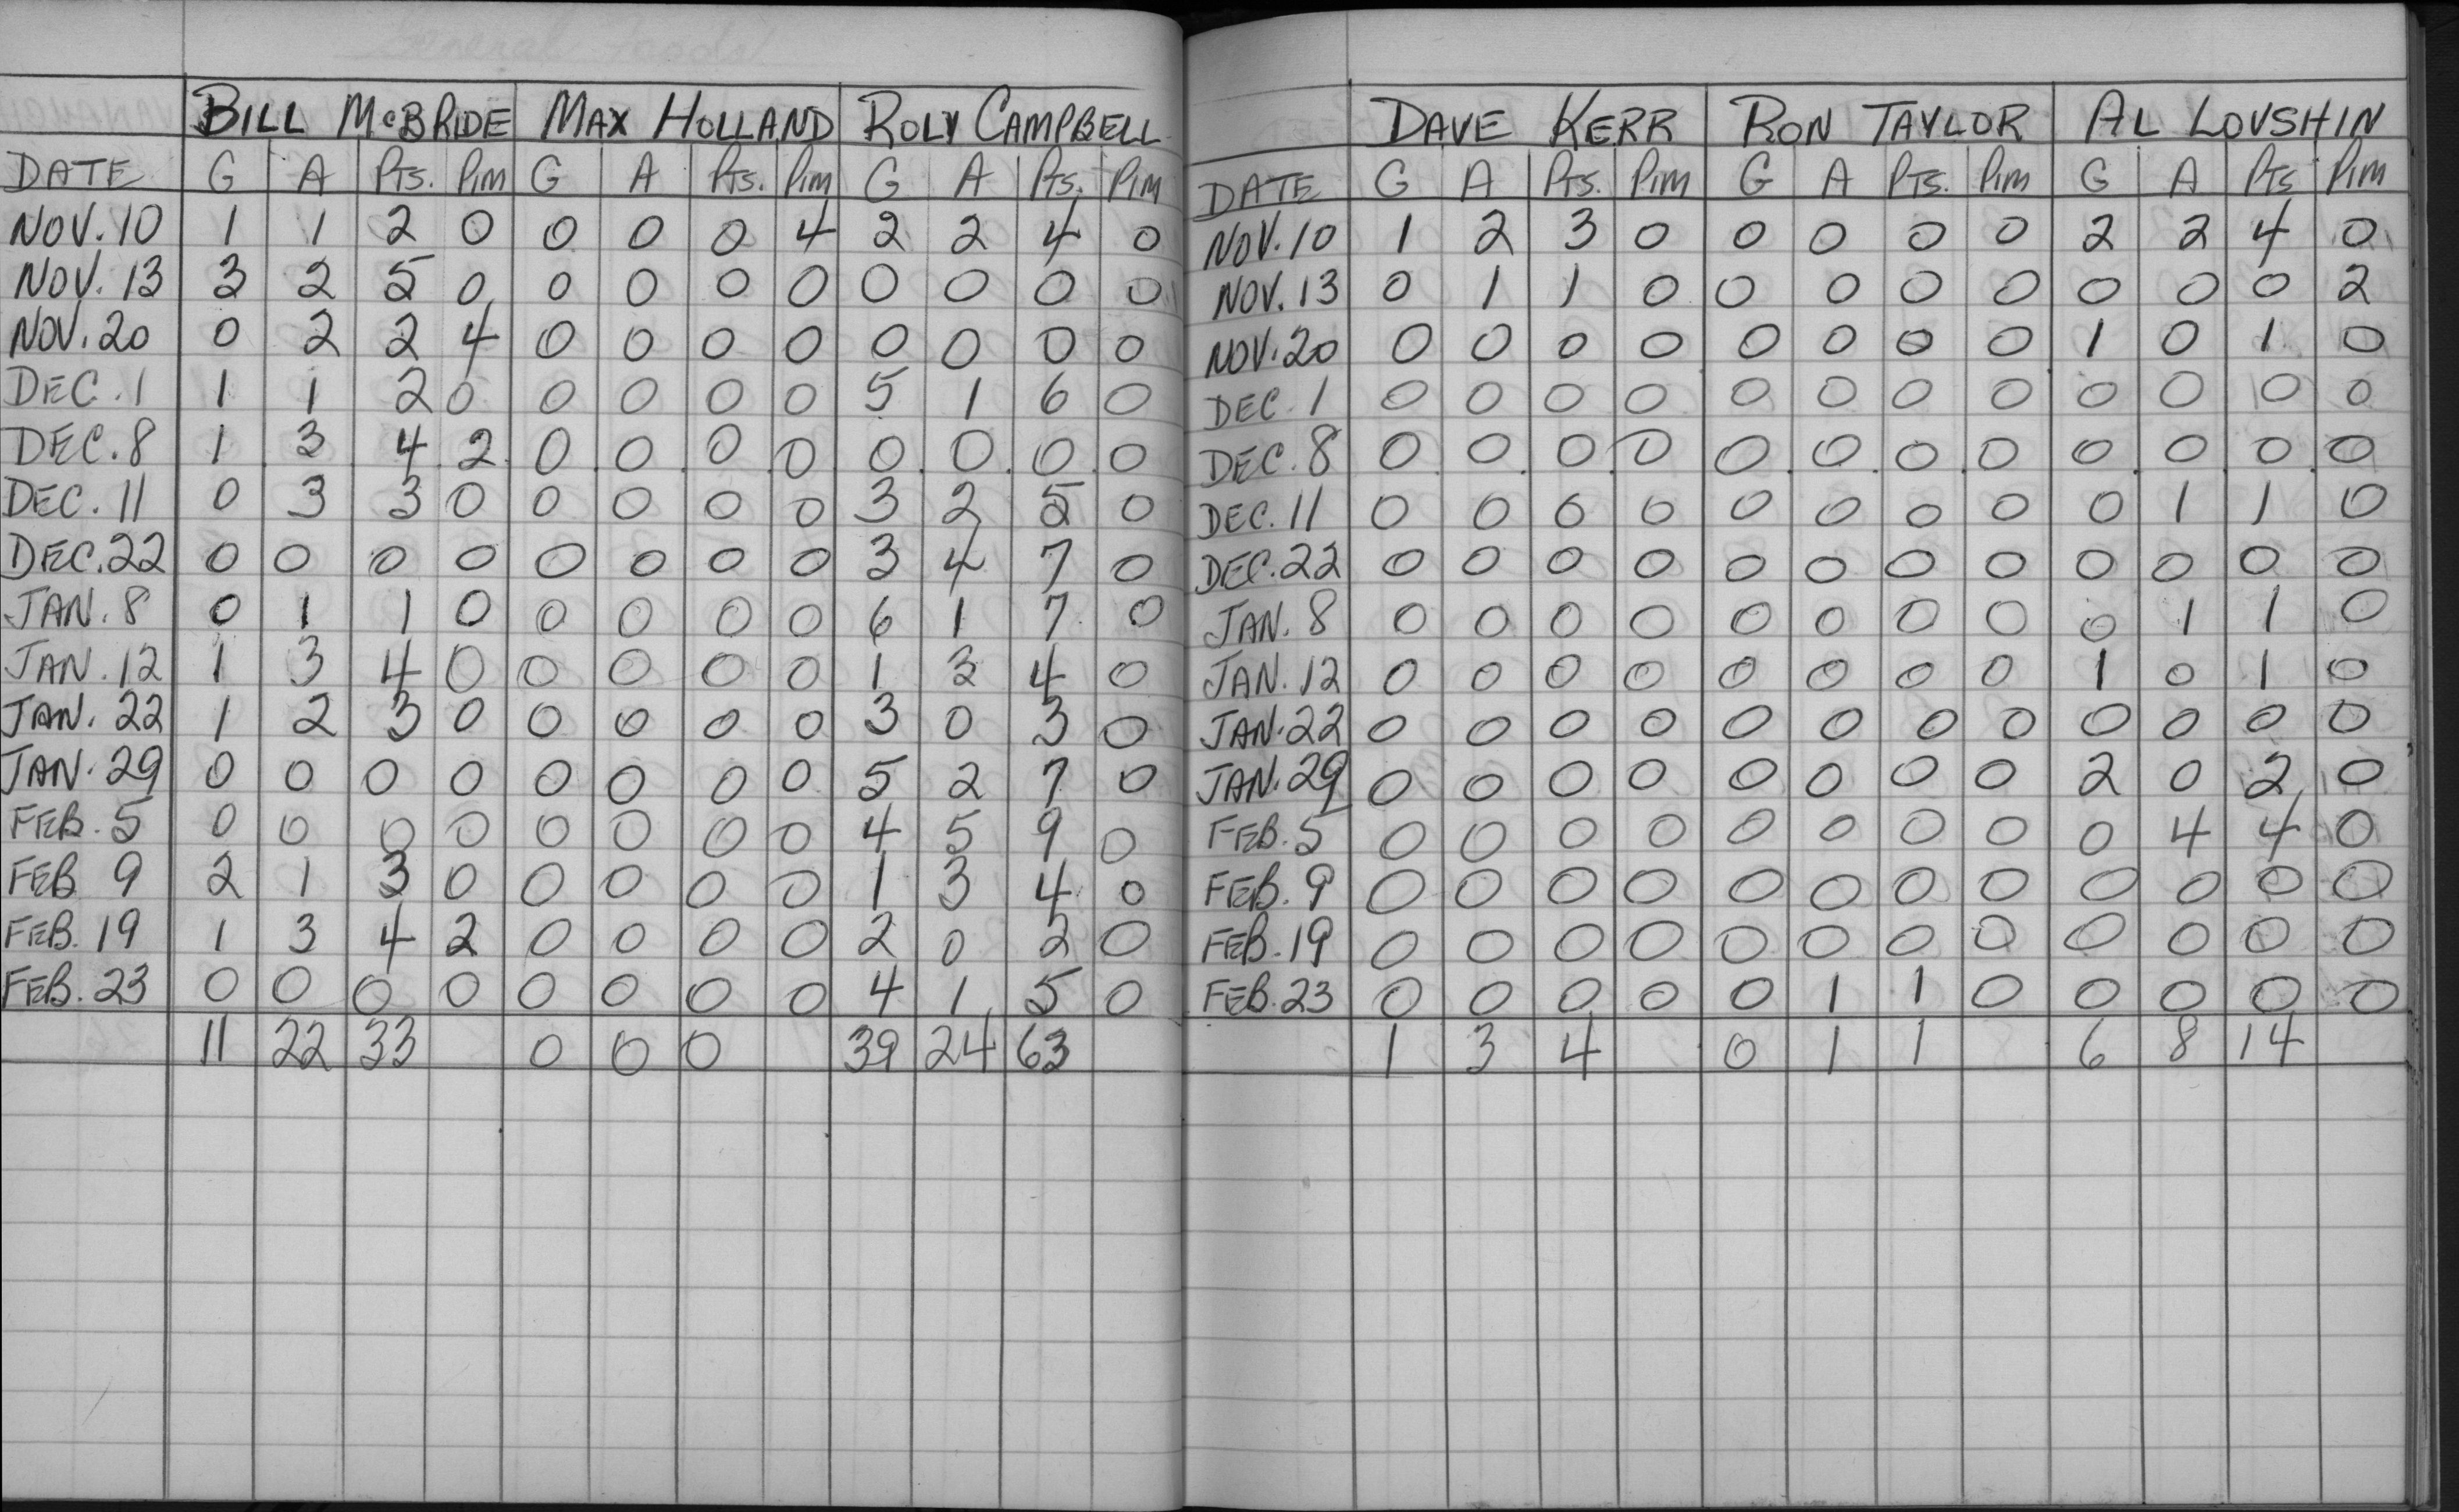 General Foods
BILL McBRIDE MAX HOLLAND ROLY CAMPBELL
DATE G A Pts. Pim G A Pts. Pim G A Pts. Pim
NOV. 10 1 1 2 0 0 0 0 4 2 2 4 0
NOV. 13 3 2 5 0 0 0 0 0 0 0 0 0
NOV. 20 0 2 2 4 0 0 0 0 0 0 0 0
DEC. 1 1 1 2 0 0 0 0 0 5 1 6 0
DEC. 8 1 3 4 2 0 0 0 0 0 0 0 0
DEC. 11 0 3 3 0 0 0 0 0 3 2 5 0
DEC. 22 0 0 0 0 0 0 0 0 3 4 7 0
JAN. 8 0 1 1 0 0 0 0 0 6 1 7 0
JAN. 12 1 3 4 0 0 0 0 0 1 3 4 0
JAN. 22 1 2 3 0 0 0 0 0 3 0 3 0
JAN. 29 0 0 0 0 0 0 0 0 5 2 7 0
FEB. 5 0 0 0 0 0 0 0 0 4 5 9 0
FEB 9 2 1 3 0 0 0 0 0 1 3 4 0
FEB. 19 1 3 4 2 0 0 0 0 2 0 2 0
FEB. 23 0 0 0 0 0 0 0 0 4 1 5 0
11 22 33 0 0 0 39 24 63
DAVE KERR RON TAYLOR AL LOVSHIN
DATE G A Pts. Pim G A Pts. Pim G A Pts Pim
NOV. 10 1 2 3 0 0 0 0 0 2 2 4 0
NOV. 13 0 1 1 0 0 0 0 0 0 0 0 2
NOV. 20 0 0 0 0 0 0 0 0 1 0 1 0
DEC. 1 0 0 0 0 0 0 0 0 0 0 0 0
DEC. 8 0 0 0 0 0 0 0 0 0 0 0 0
DEC. 11 0 0 0 0 0 0 0 0 0 1 1 0
DEC. 22 0 0 0 0 0 0 0 0 0 0 0 0
JAN. 8 0 0 0 0 0 0 0 0 0 1 1 0
JAN. 12 0 0 0 0 0 0 0 0 1 0 1 0
JAN. 22 0 0 0 0 0 0 0 0 0 0 0 0
JAN. 29 0 0 0 0 0 0 0 0 2 0 2 0
FEB. 5 0 0 0 0 0 0 0 0 0 4 4 0
FEB. 9 0 0 0 0 0 0 0 0 0 0 0 0
FEB. 19 0 0 0 0 0 0 0 0 0 0 0 0
FEB. 23 0 0 0 0 0 1 1 0 0 0 0 0
1 3 4 0 1 1 6 8 14